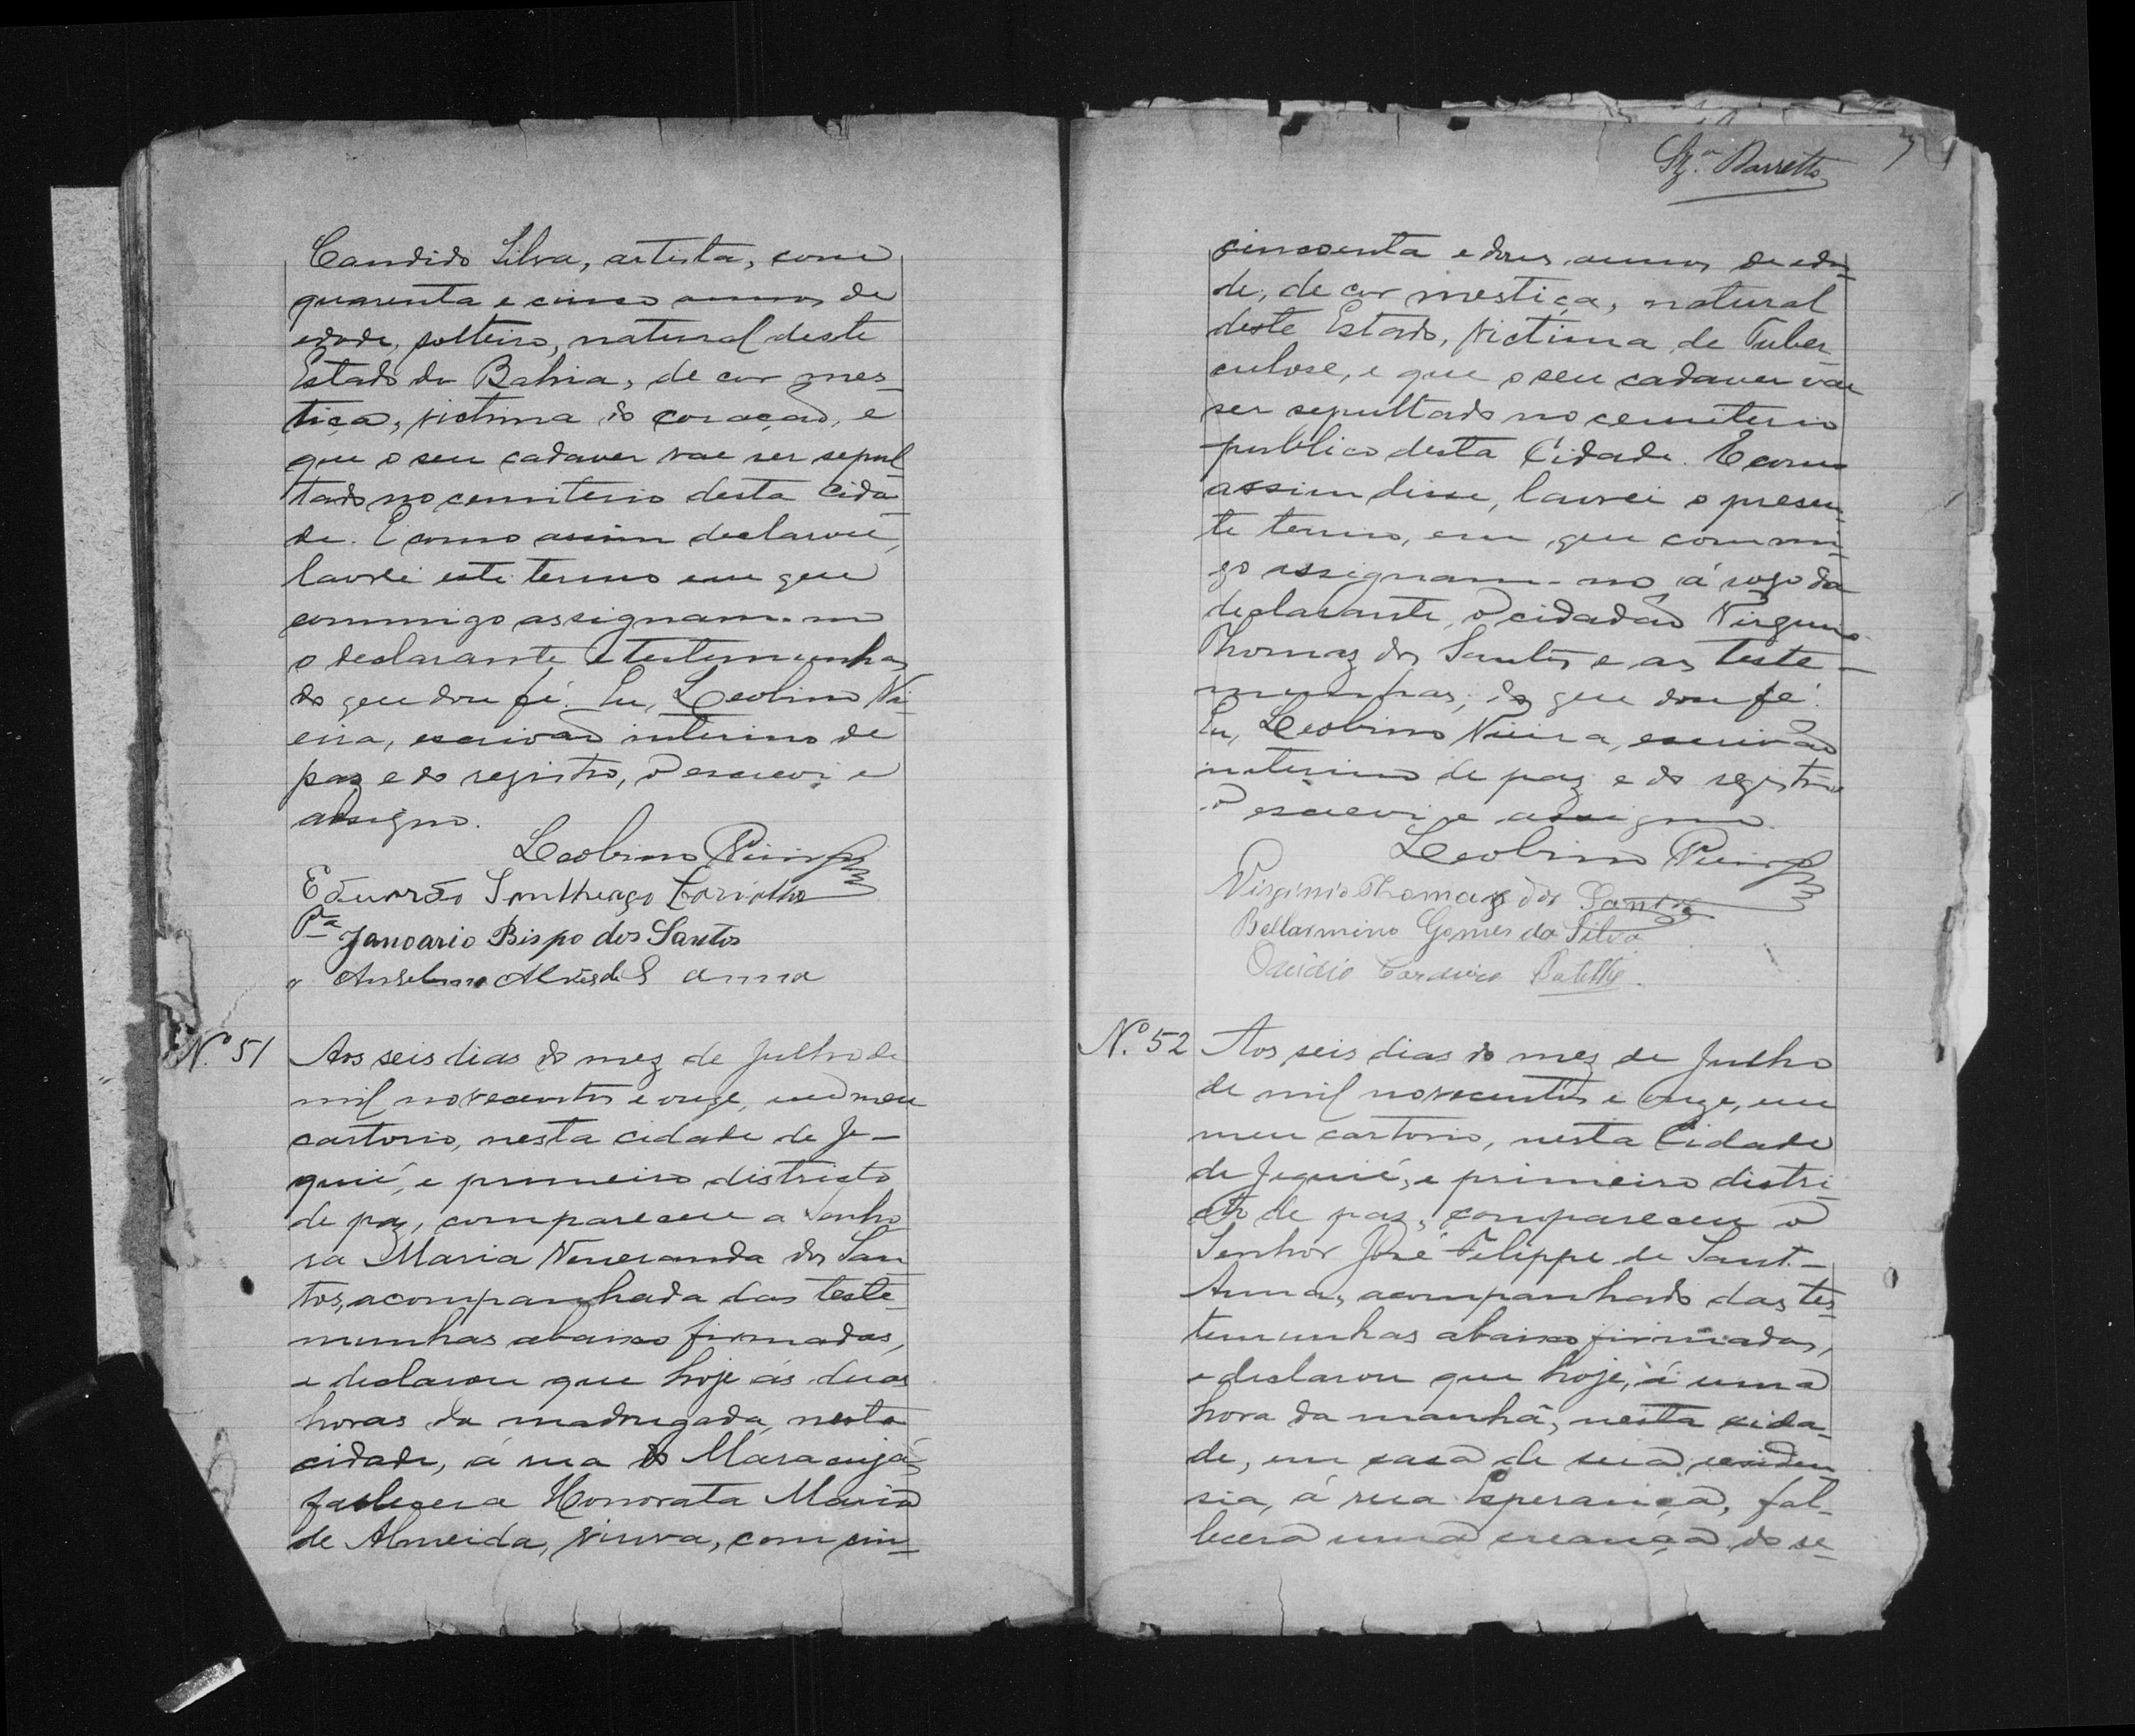 Candido Silva, artista, com
quarenta e cinco annos de
edade, solteiro, natural deste
Estado da Bahia, de cor mes-
tiça, victima do coração, e
que o seu cadaver vae ser sepul
tado no cemiterio desta Cida
de. E como assim declarou,
lavrei este termo em que
commigo assignam-no
o declarante e testemunhas
do que dou fé. Eu, Leobino Vi-
eira, escrivão interino de
paz e do registro, o escrevi e
assigno.
Leobino Vieira
Eduardo Santhiago Carvalho
Januario Bispo dos Santos
" Anselmo Alves de S anna
Nº 51 Aos seis dias do mez de Julho de
mil novecentos e onze, em meu
cartorio, nesta cidade de Je-
quié, e primeiro districto
de paz, compareceu a senho
ra Maria Veneranda dos San
tos, acompanhada das teste-
munhas abaixo firmadas,
e declarou que hoje ás duas
horas da madrugada, nesta
cidade, á rua do Maracujá,
fallecera Honorata Maria
de Almeida, viuva, com cin-
Barretto
cincoenta e dous annos de eda-
de, de cor mestiça, natural
deste Estado, victima de Tuber
culose, e que o seu cadaver vae
ser sepultado no cemiterio
publico desta Cidade. E como
assim disse, lavrei o presen-
te termo, em que commi-
go assignam-no á rogo da
declarante, o cidadão Virginio
Thomaz dos Santos e as teste-
munhas, do que dou fé.
Eu, Leobino Vieira, escrivão
interino de paz e do registro
o escrevi e assigno.
Leobino Vieira
Virginio Thomaz dos Santos
Bellarmino Gomes da Silva
Ovidio Cordeiro
Nº. 52 Aos seis dias do mez de Julho
de mil novecentos e onze, em
meu cartorio, nesta Cidade
de Jequié, e primeiro distri-
cto de paz, compareceu o
Senhor José Felippe de Sant-
Anna, acompanhado das tes
temunhas abaixo firmadas,
e declarou que hoje, á uma
hora da manhã, nesta cida-
de, em casa de sua residen
sia, á rua Esperança, fal-
lecera uma creança do se-